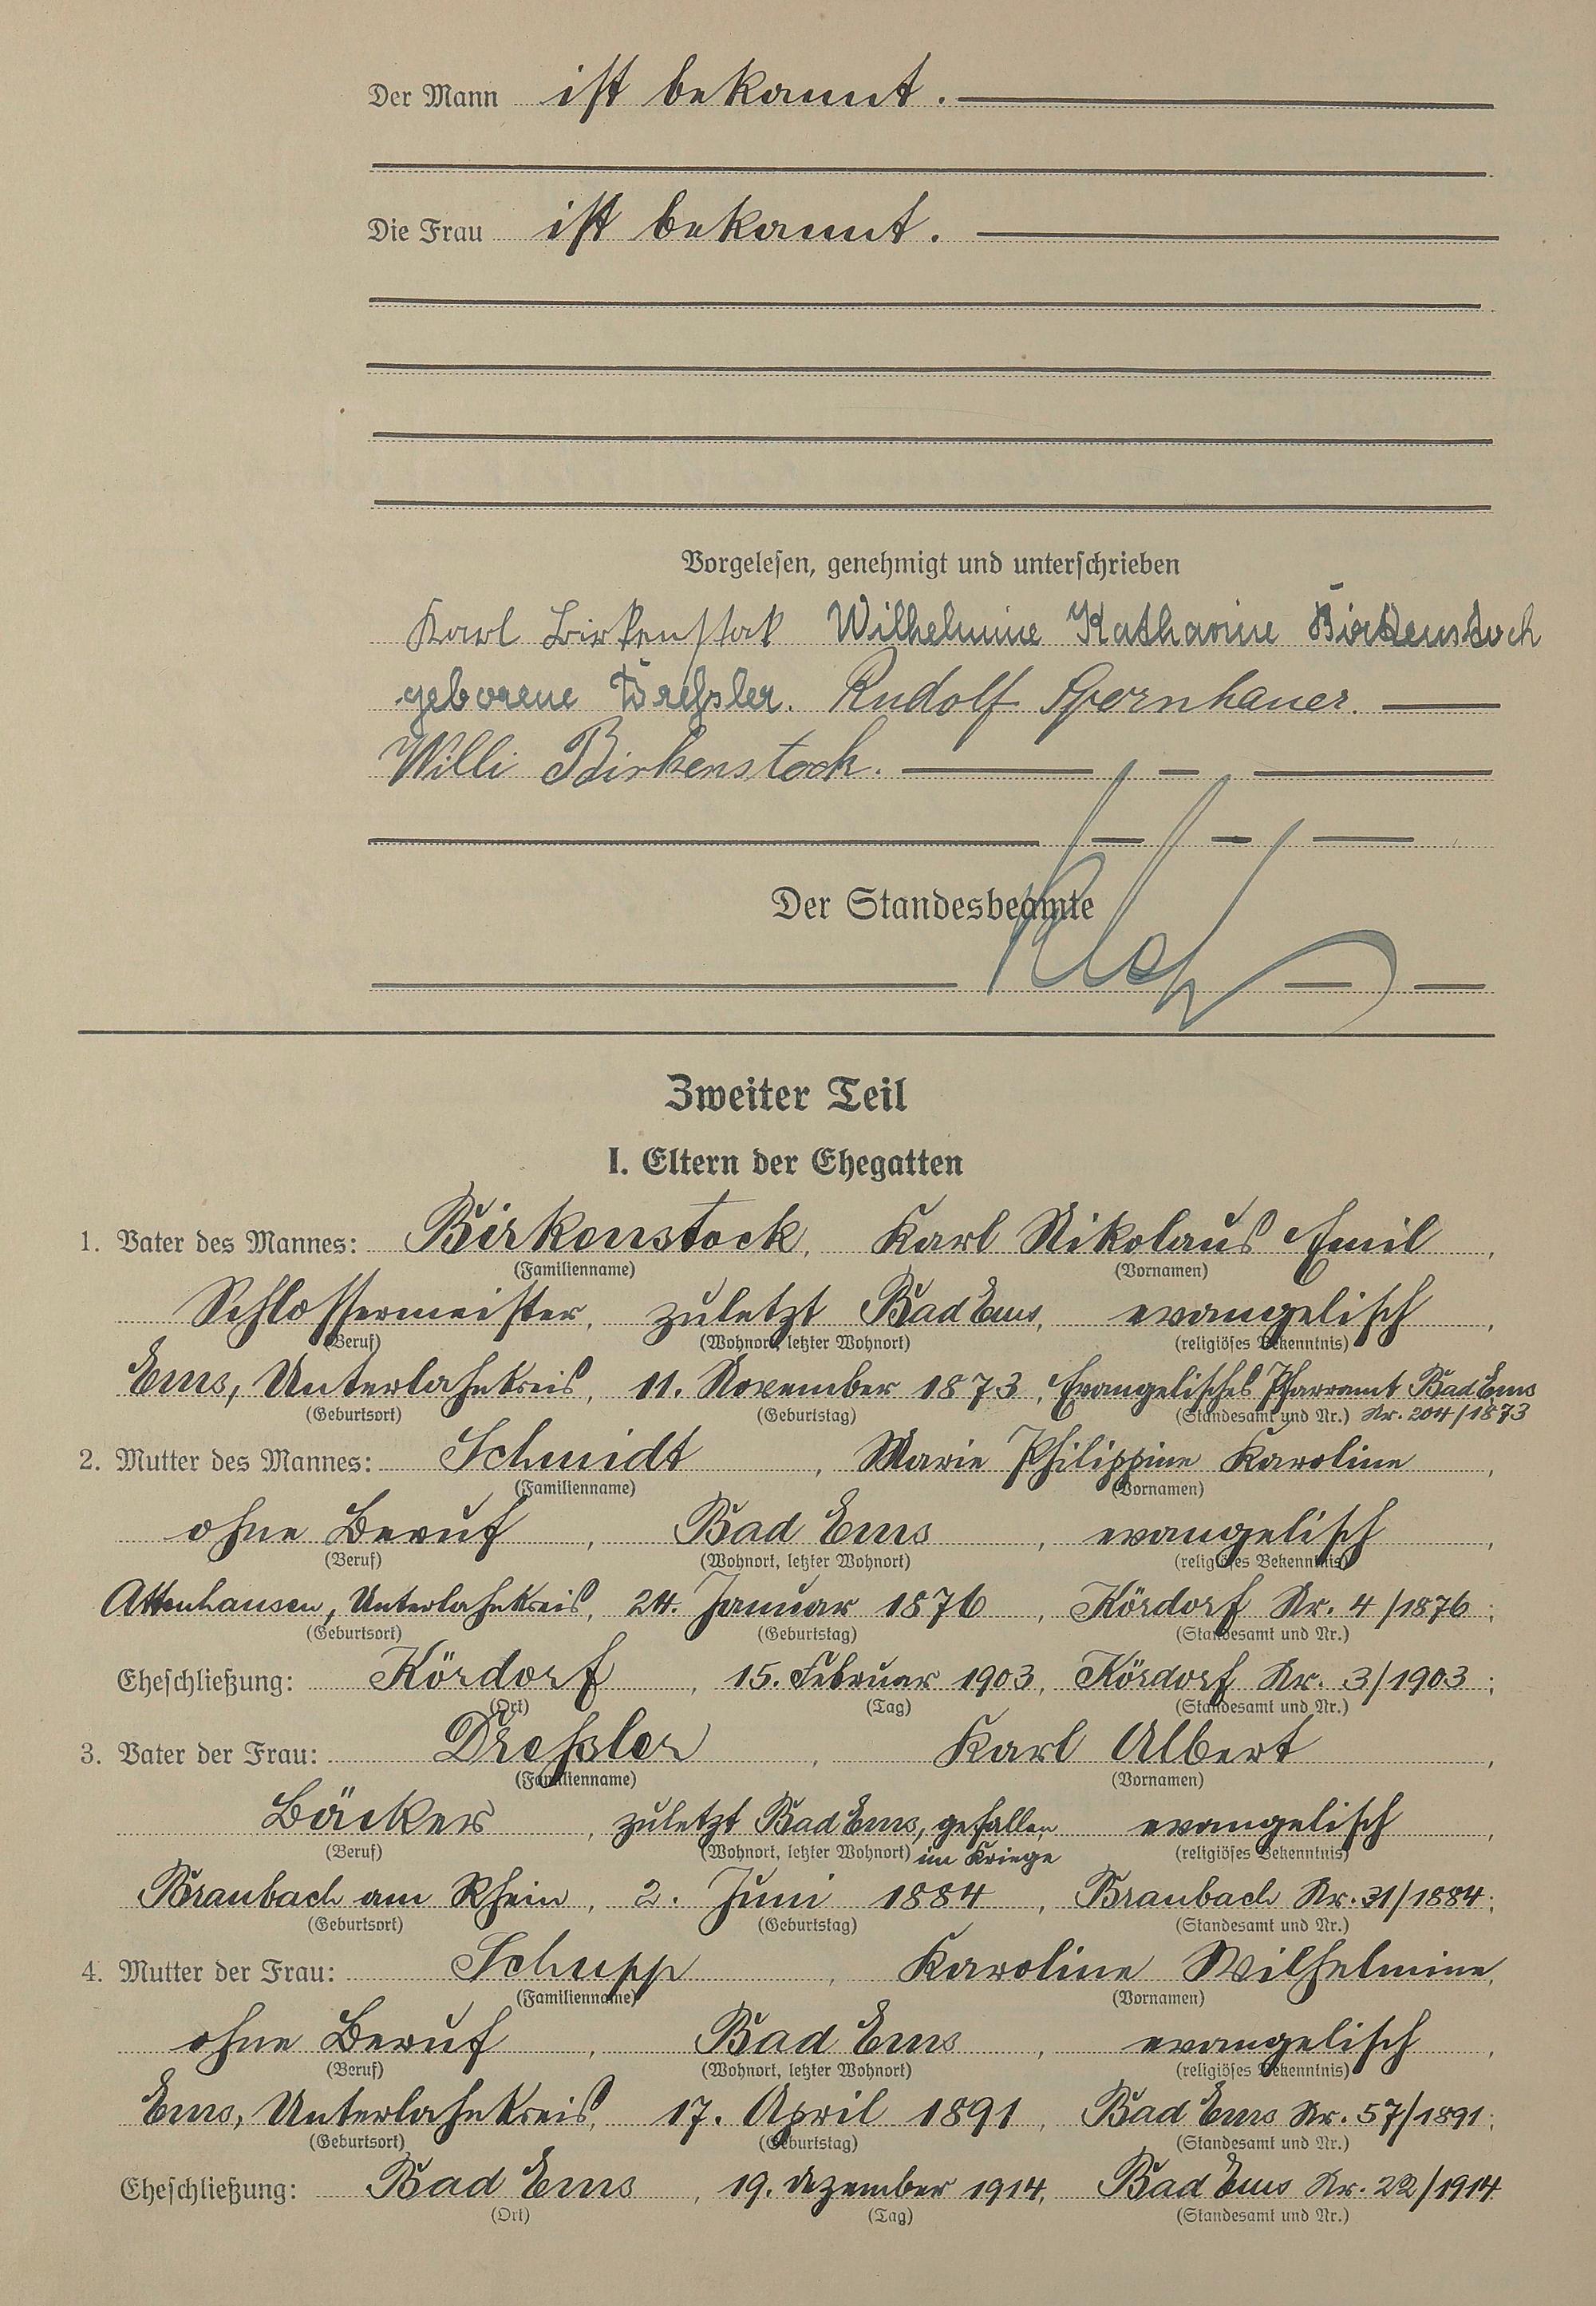 Der Mann ist bekannt.
Die Frau ist bekannt.
Vorgelesen, genehmigt und unterschrieben
Karl Birkenstok Wilhelmine Katharine Birkenstock
geborene Dreßler. Rudolf Spornhauer.
Willi Birkenstock.
Der Standesbeamte
Zweiter Teil
I. Eltern der Ehegatten
1. Vater des Mannes: Birkenstock, Karl Nikolaus Emil,
(Familienname) (Vornamen)
Schlossermeister, zuletzt Bad Ems, evangelisch,
(Beruf) (Wohnort, letzter Wohnort) (religiöses Bekenntnis)
Ems, Unterlahnkreis, 11. November 1873, Evangelisches Pfarramt Bad Ems
(Geburtsort) (Geburtstag) (Standesamt und Nr.) Nr. 204/1873
2. Mutter des Mannes: Schmidt, Marie Philippine Karoline,
(Familienname) (Vornamen)
ohne Beruf, Bad Ems, evangelisch,
(Beruf) (Wohnort, letzter Wohnort) (religiöses Bekenntnis)
Attenhausen, Unterlahnkreis, 24. Januar 1876, Kördorf Nr. 4/1876;
(Geburtsort) (Geburtstag) (Standesamt und Nr.)
Eheschließung: Kördorf, 15. Februar 1903, Kördorf Nr. 3/1903;
(Ort) (Tag) (Standesamt und Nr.)
3. Vater der Frau: Dreßler, Karl Albert,
(Familienname) (Vornamen)
Bäcker, zuletzt Bad Ems, gefallen evangelisch,
(Beruf) (Wohnort, letzter Wohnort) im Kriege (religiöses Bekenntnis)
Braubach am Rhein, 2. Juni 1884, Braubach Nr. 31/1884;
(Geburtsort) (Geburtstag) (Standesamt und Nr.)
4. Mutter der Frau: Schupp, Karoline Wilhelmine,
(Familienname) (Vornamen)
ohne Beruf, Bad Ems, evangelisch,
(Beruf) (Wohnort, letzter Wohnort) (religiöses Bekenntnis)
Ems, Unterlahnkreis, 17. April 1891, Bad Ems Nr. 57/1891;
(Geburtsort) (Geburtstag) (Standesamt und Nr.)
Eheschließung: Bad Ems, 19. Dezember 1914, Bad Ems Nr. 22/1914
(Ort) (Tag) (Standesamt und Nr.)